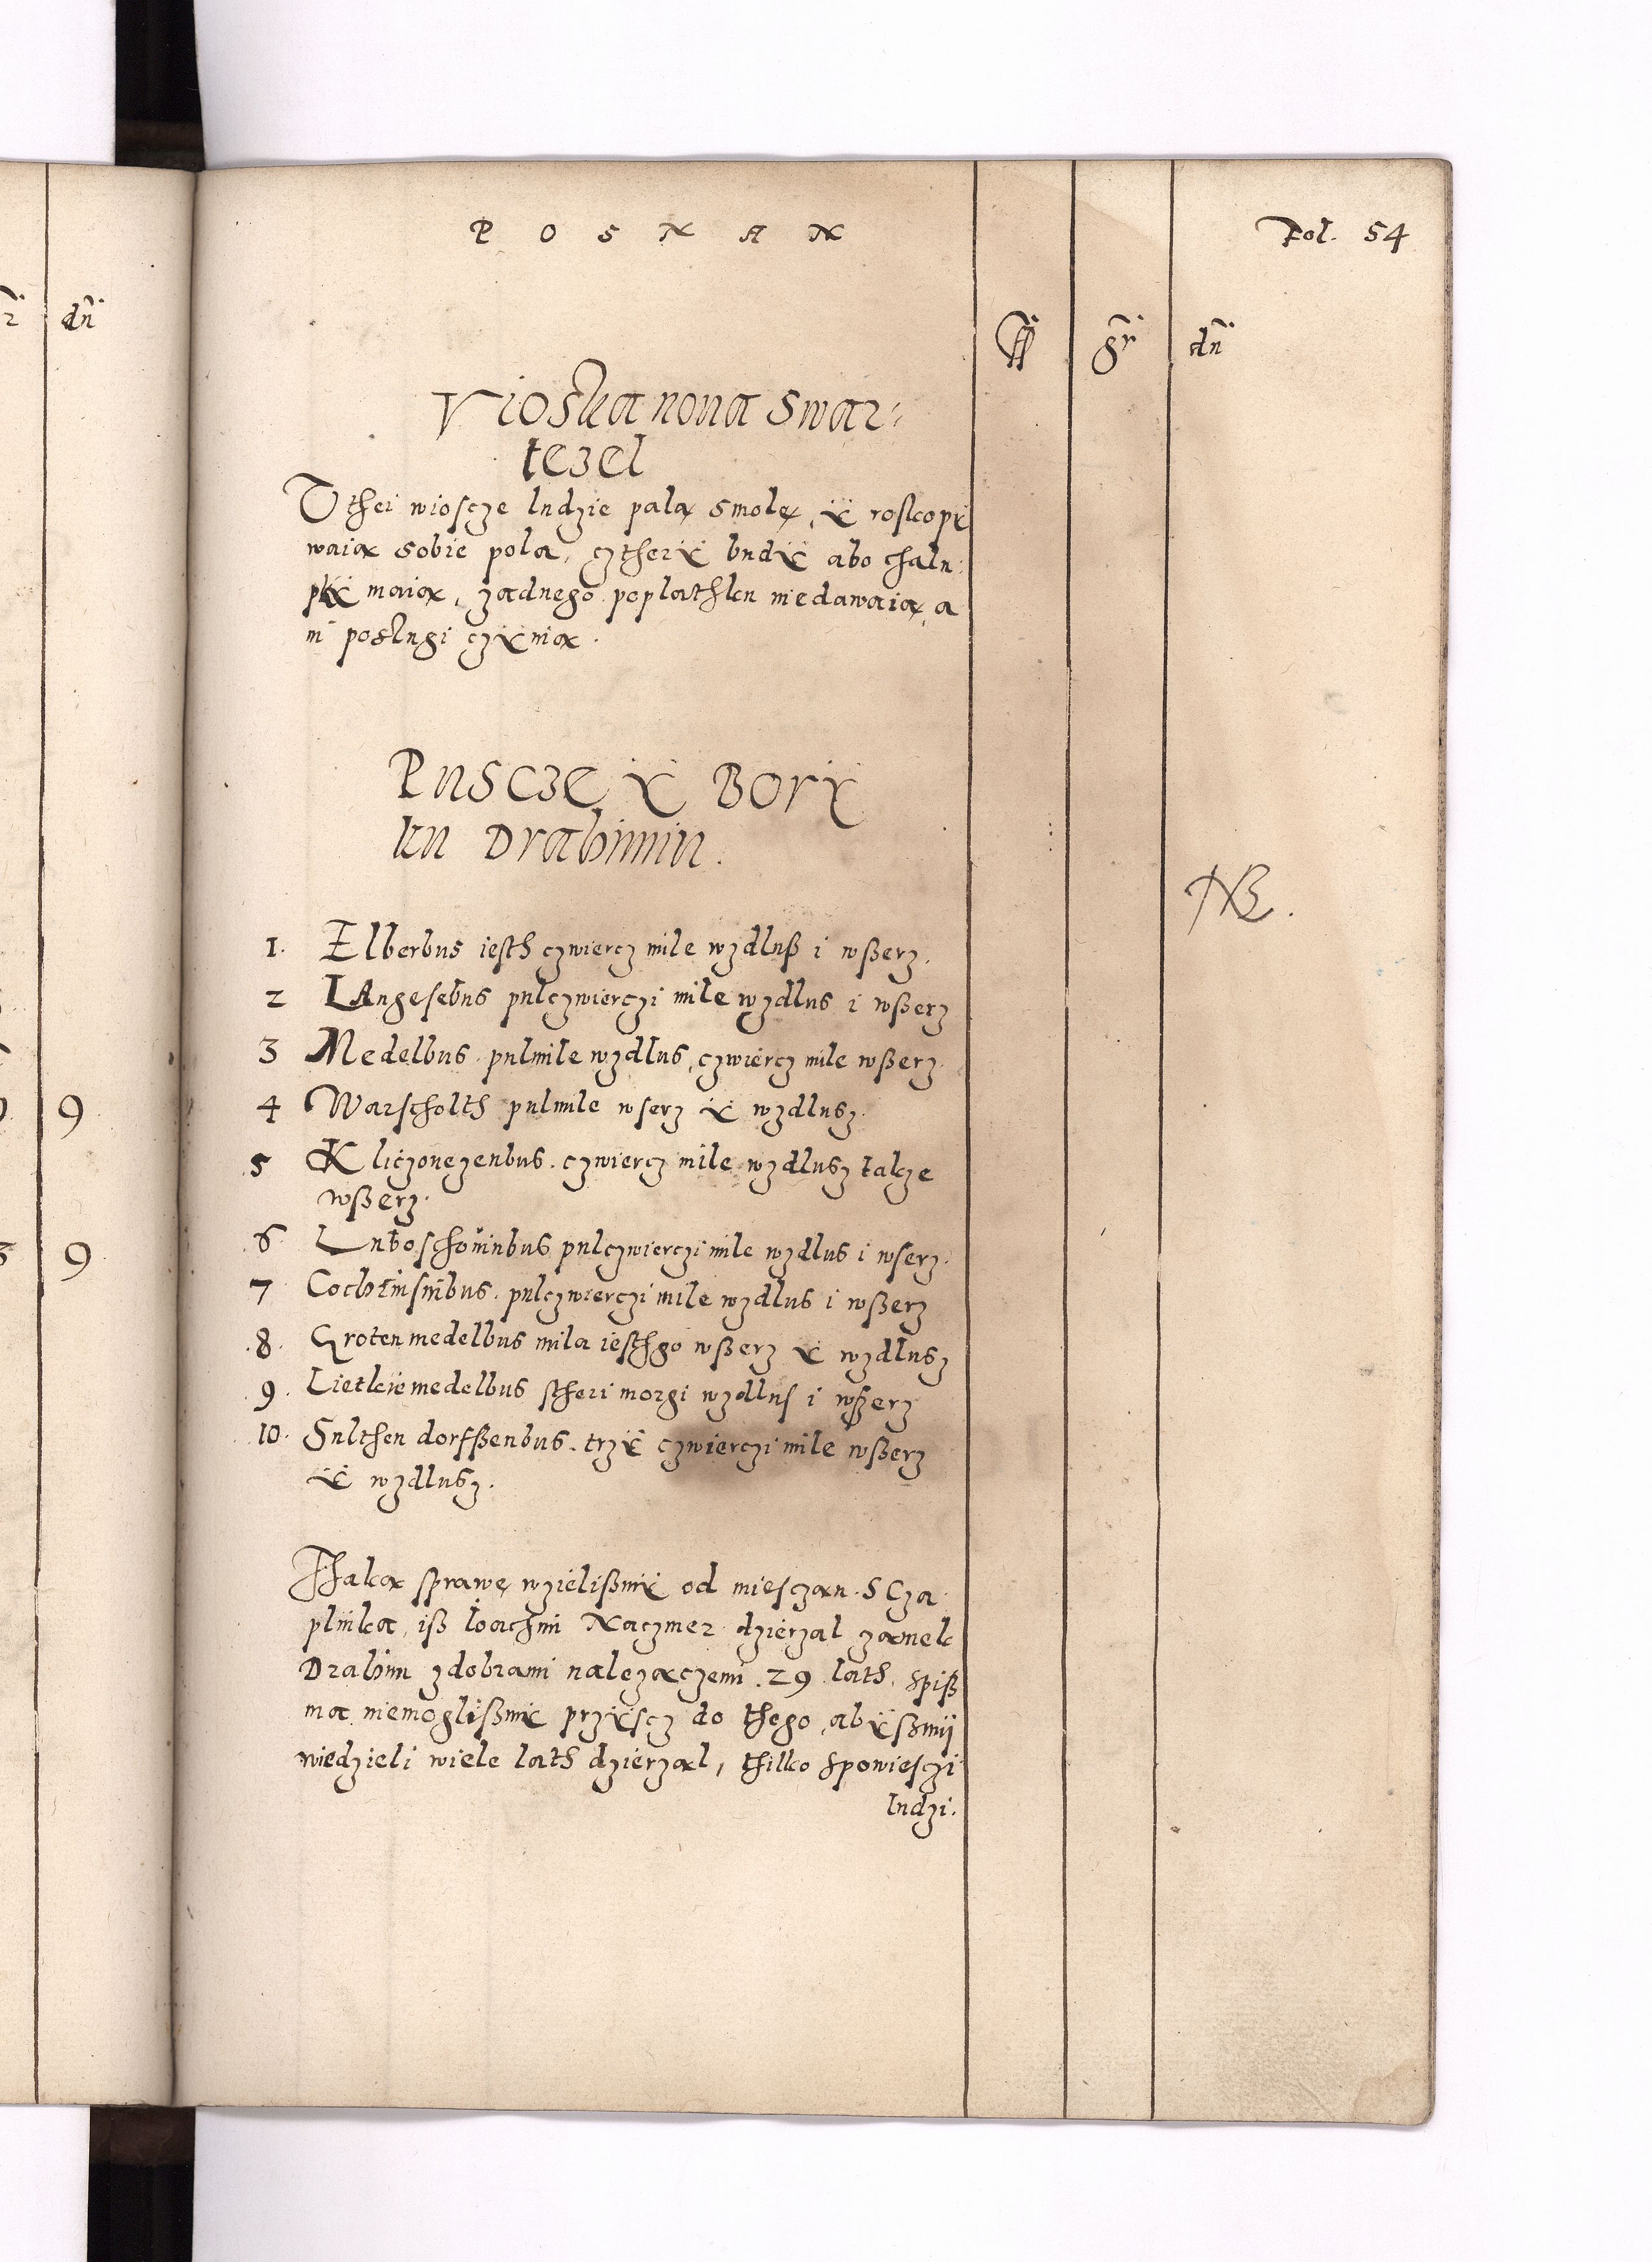 P O S N A N
Fol. 54
fl gr dn
Vioska nova Swar-
tezel
W thei wioscze ludzie palą smolę, ÿ roskopÿ
waią sobie pola, cztherÿ budÿ abo chalu-
pkÿ maią, zadnego poplathku niedawaią, a
ni poslugi czÿnią.
Puscze ÿ Borÿ
ku Drahimiu.
NB.
1. Elberbus iesth czwiercz mile wzdluß i wßerz.
2 Langesebus pulczwierczi mile wzdlus i wßerz
3 Medelbus pulmile wzdlus, czwiercz mile wßerz.
4 Warscholth pulmile wserz ÿ wzdlusz.
5 Kliczonezenbus. czwiercz mile wzdlusz takze
wßerz.
6 Luboschoninbus pulczwierczi mile wzdlus i wserz.
7 pulczwierczi mile wzdlus i wßerz
8. Grotenmedelbus mila iesthgo wßerz ÿ wzdlusz
9. Lietkiemedelbus stheri morgi wzdlus i wßerz
10. Sulthen dorfßenbus. trzÿ czwierczi mile wßerz
ÿ wzdlusz.
Thaką sprawę wzielißmÿ od mieszczan S Cza
plinka, iß Ioachim Naczmer dzierzal zamek
Drahim zdobrami nalezączemi. 29 lath, spiß
ma niemoglißmÿ przÿscz do thego, abÿßmÿ
wiedzieli wiele lath dzierzal, thilko spowiesczi
ludzi.
dn
9
9